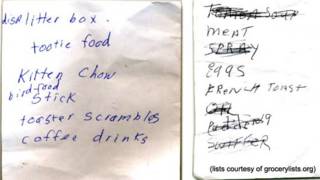 disp litter box.
tootie food
Kitten Chow
bird food
Stick
toaster scrambles
coffee drinks
Tomato Soup
MEAT
SPRAY
EGGS
FRENCH TOAST
OR
Pudding
SWIFFER
(lists courtesy of grocerylists.org)